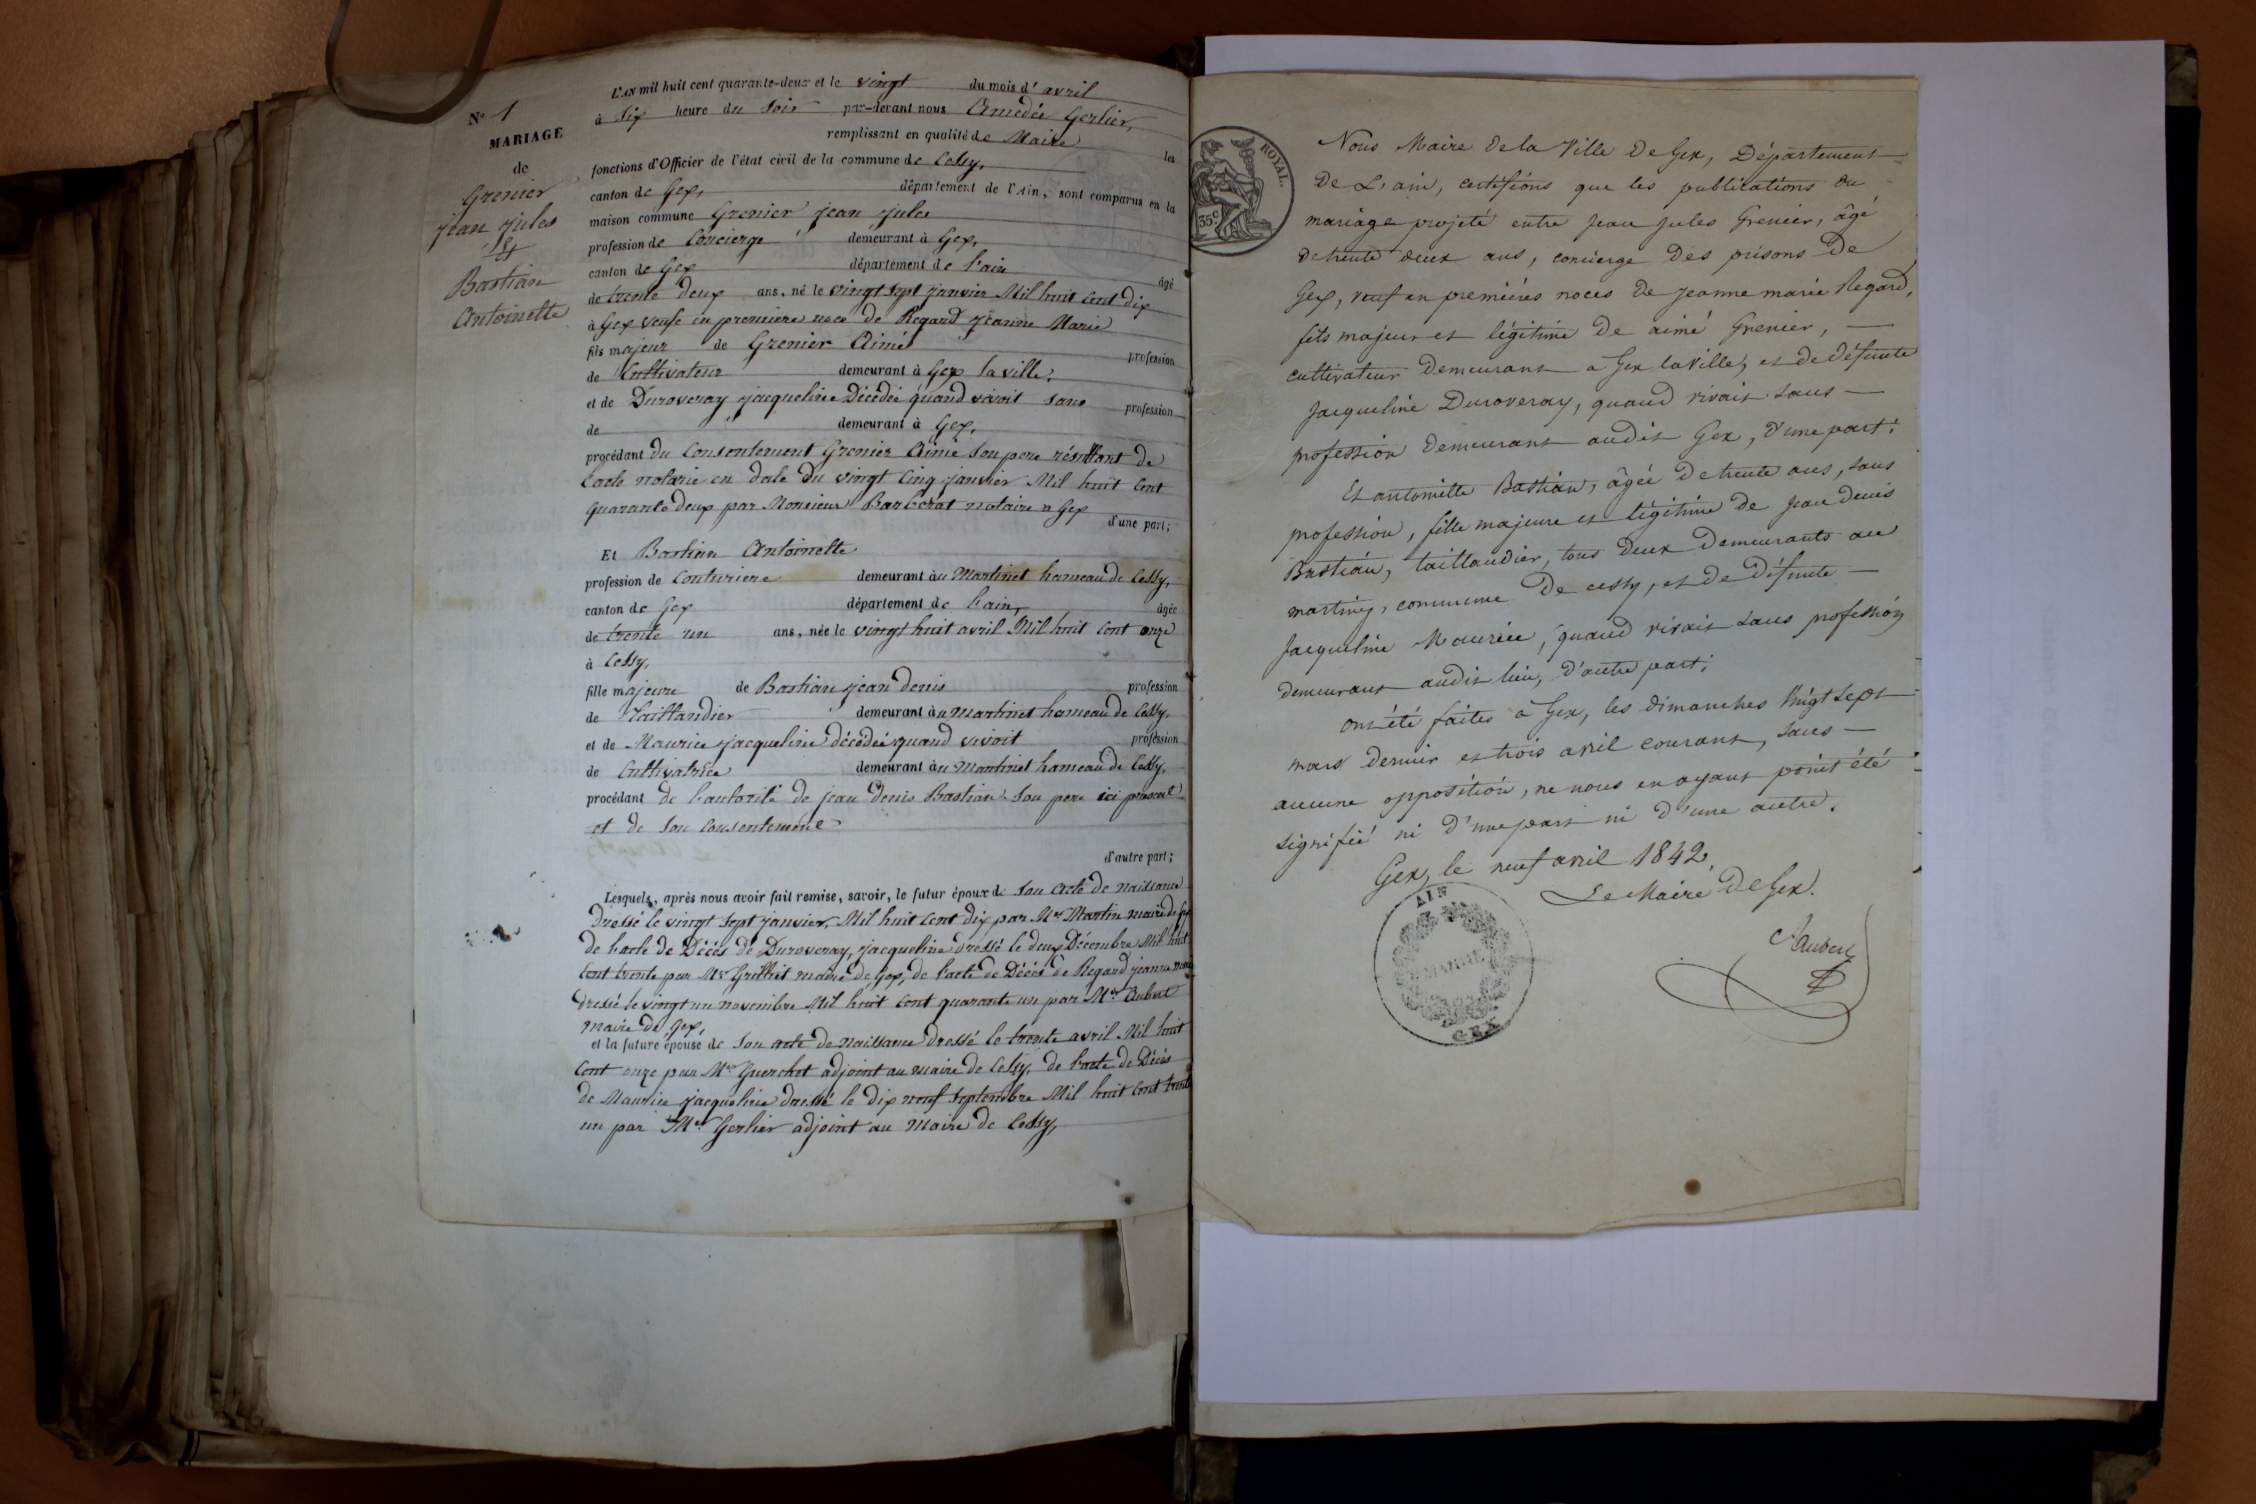 N° 1
MARIAGE
de
Grenier
jean jules
&
Bastian
Antoinette
L'AN mil huit cent quarante-deux et le vingt du mois d'avril
à six heure du soir par-devant nous Amédée Gerlier,
remplissant en qualité de Maire les
fonctions d'Officier de l'état civil de la commune de Cessy,
canton de Gex, département de l'Ain, sont comparus en la
maison commune Grenier jean jules
profession de Concierge demeurant à Gex,
canton de Gex département de l'ain âgé
de trente deux ans, né le vingt sept janvier Mil huit cent dix
à Gex veuf en premiere noce de Regard jeanne Marie
fils majeur de Grenier Aimé profession
de Cultivateur demeurant à Gex la ville,
et de Duroveray jacqueline Décédée quand vivoit sans profession
de demeurant à Gex,
procédant du Consentement Grenier Aimé son pere résultant de
l'acte notarié en date du vingt cinq janvier Mil huit cent
quarante deux par Monsieur Barberat notaire a Gex
d'une part;
Et Bastian Antoinette
profession de Couturiere demeurant au Martinet hameau de Cessy,
canton de Gex département de l'ain, âgée
de trente un ans, née le vingt huit avril Mil huit cent onze
à Cessy,
fille majeure de Bastian jean denis profession
de Taillandier demeurant au Martinet hameau de Cessy,
et de Maurice jacqueline décédée quand vivoit profession
de Cultivatrice demeurant au Martinet hameau de Cessy,
procédant de l'autorité de jean denis Bastian son pere ici present
et de son consentement
d'autre part;
Lesquels, après nous avoir fait remise, savoir, le futur époux de son acte de naissance
dressé le vingt sept janvier Mil huit cent dix par Mr Martin maire de Gex
de l'acte de Décès de Duroveray, jacqueline dressé le deux Décembre Mil huit
cent trente par Mr Grelliet maire de Gex, de l'acte de Décès de Regard jeanne marie
dressé le vingt un novembre Mil huit cent quarante un par Mr Aubert
maire de Gex,
et la future épouse de son acte de naissance dressé le trente avril Mil huit
cent onze par Mr Guerchet adjoint au maire de Cessy, de l'acte de Décès
de Maurice jacqueline dressé le dix neuf septembre Mil huit cent trente
un par Mr Gerlier adjoint au Maire de Cessy,
ROYAL.
35 c
Nous Maire de la Ville de Gex, Département
de L'ain, certifions que les publications du
mariage projeté entre jean jules Grenier, âgé
de trente deux ans, concierge des prisons de
Gex, veuf en premières noces de jeanne marie Regard,
fils majeur et légitime de aimé Grenier,
cultivateur demeurant a Gex la ville, et de défunte
jacqueline Duroveray, quand vivait sans
profession demeurant audit Gex, d'une part;
Et antoinette Bastian, âgée de trente ans, sans
profession, fille majeure et légitime de jean denis
Bastian, taillandier, tous deux demeurants au
martinet, commune de cessy, et de défunte
jacqueline Maurice, quand vivait sans profession
demeurant audit lieu, d'autre part;
ont été faites a Gex, les dimanches vingt sept
mars dernier et trois avril courant, sans
aucune opposition, ne nous en ayant point été
signifié ni d'une part ni d'une autre.
Gex, le neuf avril 1842,
Le Maire de Gex.
Aubert
AIN
MAIRIE
GEX